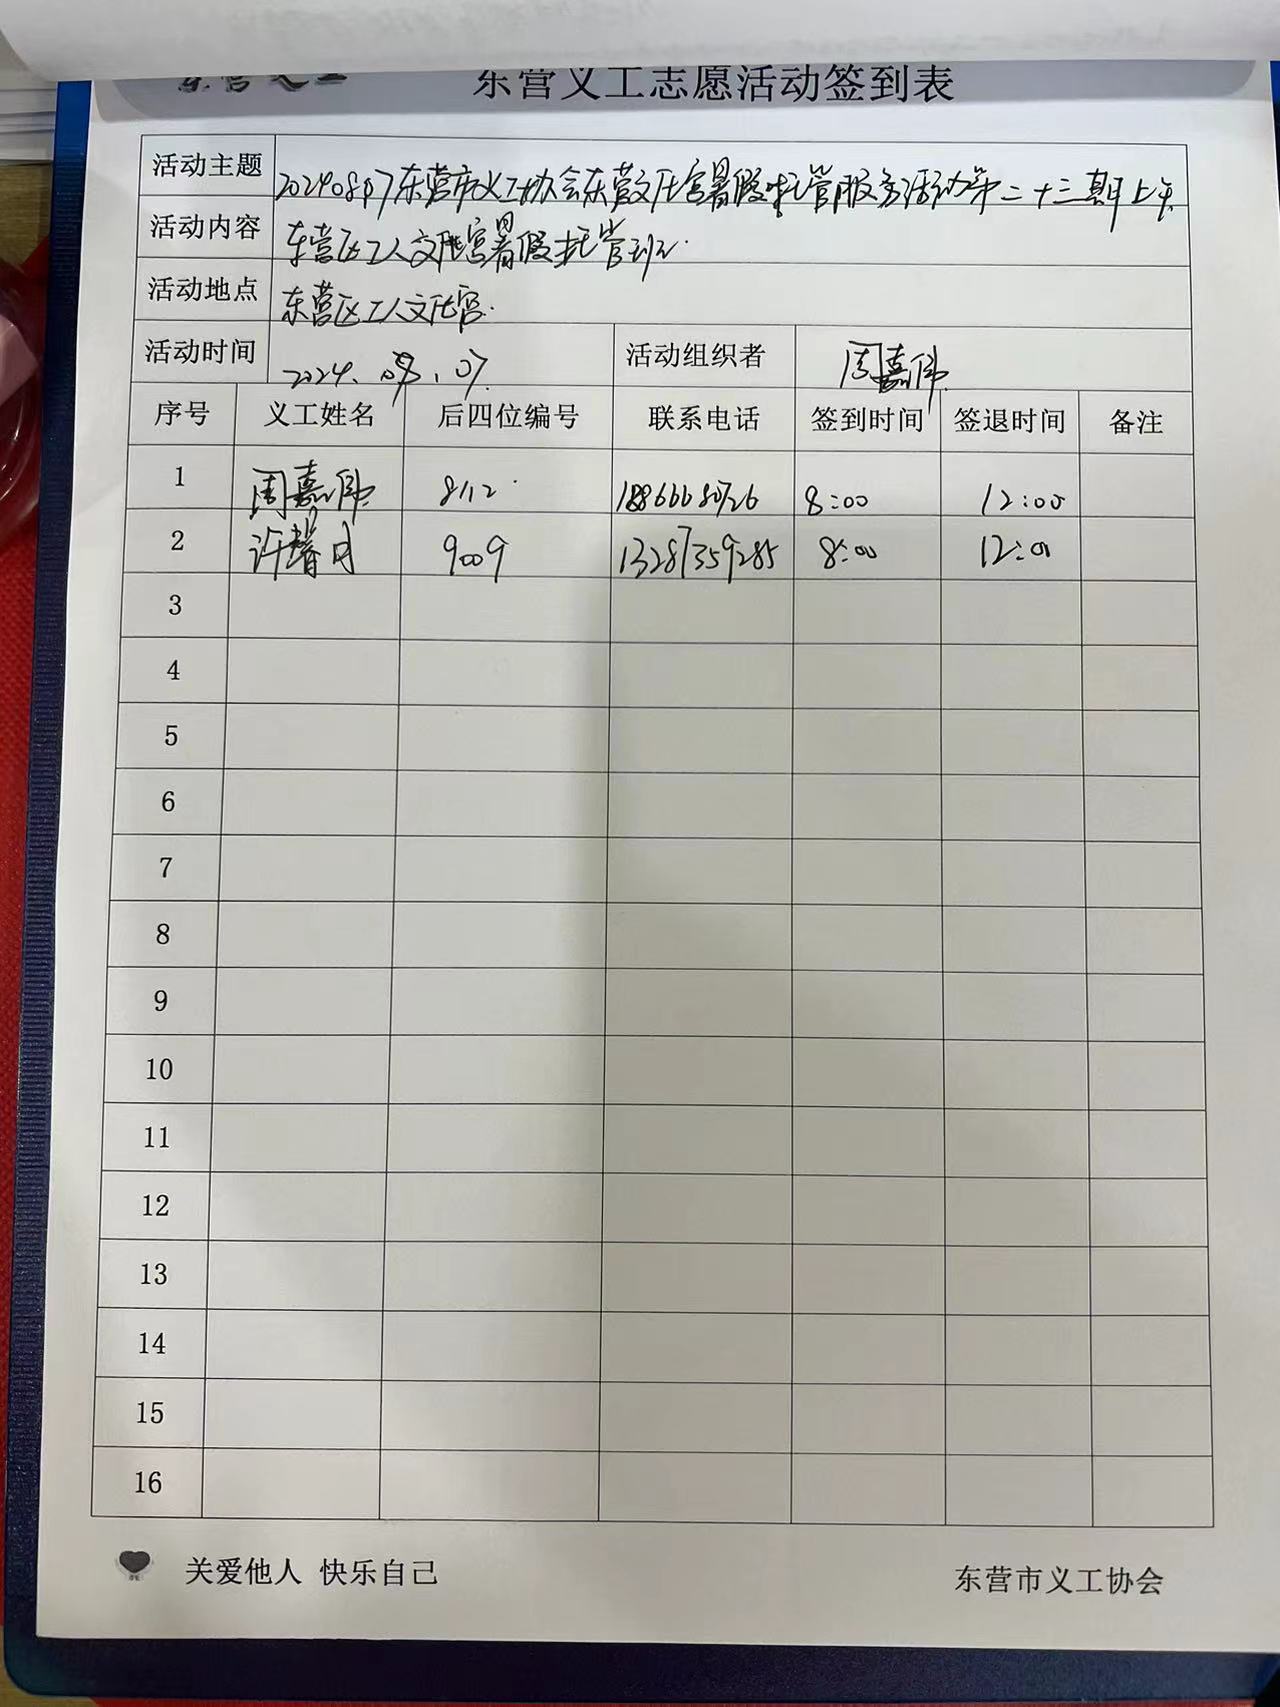 东营义工
东营义工志愿活动签到表
活动主题 20240807东营市义工协会东营文化宫暑假托管服务活动第二十三期上午
活动内容 东营区工人文化宫暑假托管班
活动地点 东营区工人文化宫.
活动时间 2024.08.07. 活动组织者 周嘉伟
序号 义工姓名 后四位编号 联系电话 签到时间 签退时间 备注
1 周嘉伟 8112 8:00 12:00
2 许馨月 9009 13287359285 8:00 12:00
3
4
5
6
7
8
9
10
11
12
13
14
15
16
关爱他人 快乐自己 东营市义工协会